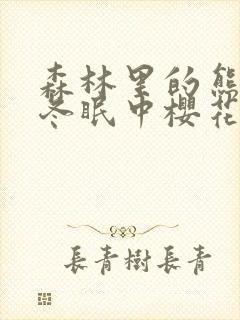 森林里的熊
冬眠中樱花
長青樹長青